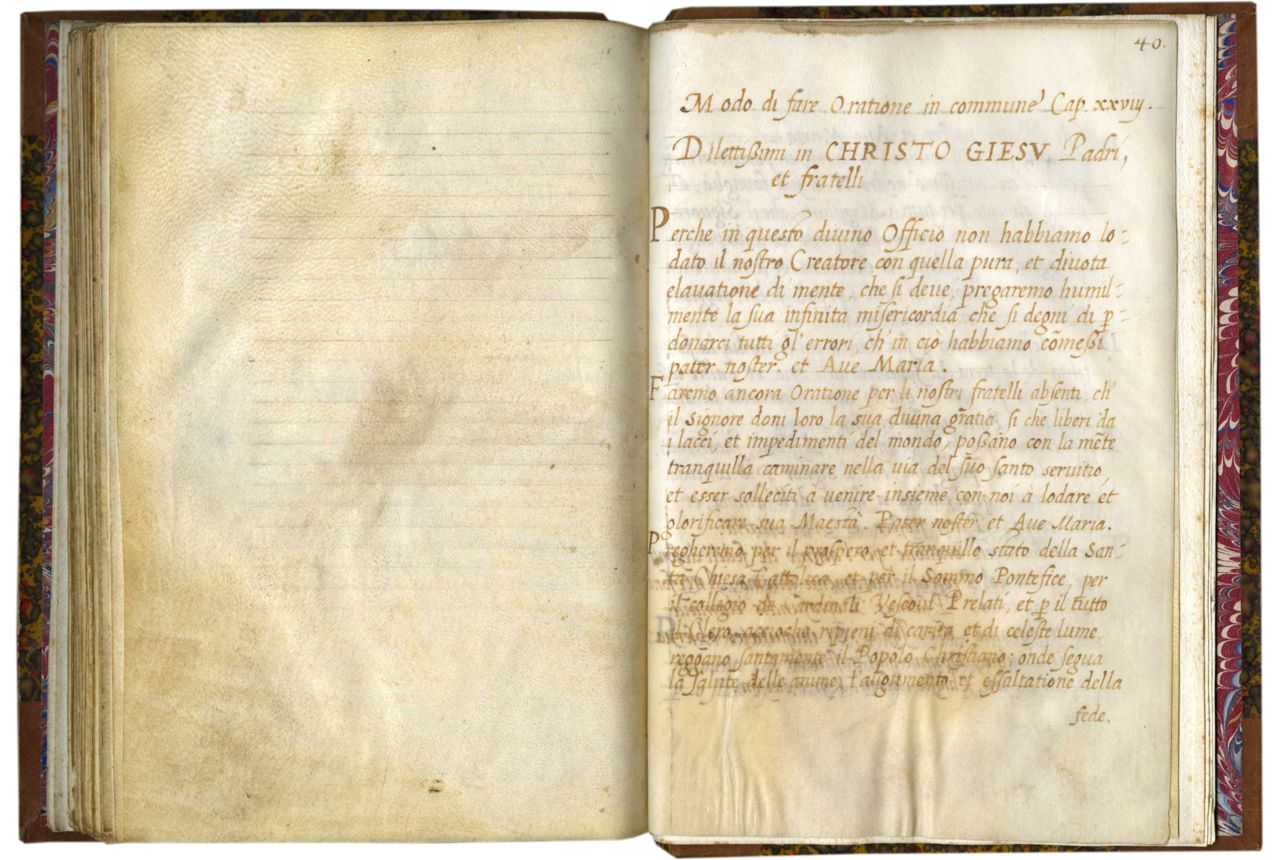 40.
Modo di fare Oratione in commune Cap. xxviij.
Dilettißimi in CHRISTO GIESV Padri,
et fratelli
Perche in questo divino Officio non habbiamo lo-
dato il nostro Creatore con quella pura, et divota
elavatione di mente, che si deve, pregaremo humil-
mente la sua infinita misericordia che si degni di p̄-
donarci tutti gl' errori, ch' in ciò habbiamo cōmeßi
pater noster. et Ave Maria.
Faremo ancora Oratione per li nostri fratelli absenti, ch'
il Signore doni loro la sua divina grātia, si che liberi da
i lacci, et impedimenti del mondo, poßano con la mēte
tranquilla caminare nella via del suo santo servitio,
et esser solleciti à venire insieme con noi à lodare et
glorificare sua Maestà. Pater noster, et Ave Maria.
Pregheremo per il prospero, et tranquillo stato della San-
ta Chiesa Cattolica, et per il Sommo Pontefice, per
il collegio de Cardinali Vescovi Prelati, et p̄ il tutto
il Clero, acciochè ripieni di carità et di celeste lume,
reggano santamente il Popolo Christiano; onde segua
la salute delle anime, l'augumento et essaltatione della
fede.